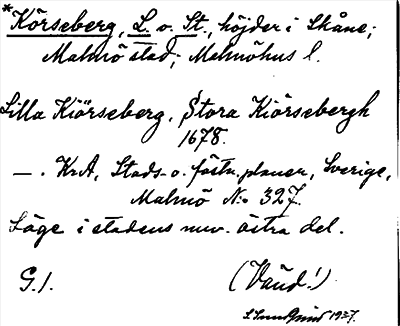 *Körseberg, L. o. St., höjder i Skåne;
Malmö stad; Malmöhus l.
Lilla Kiörseberg, Stora Kiörsebergh
1678.
— . KrA, Stads- o. fästn. planer, Sverige,
Malmö N:o 327.
Läge i stadens nuv. östra del.
G.1. (Vänd!)
1927.